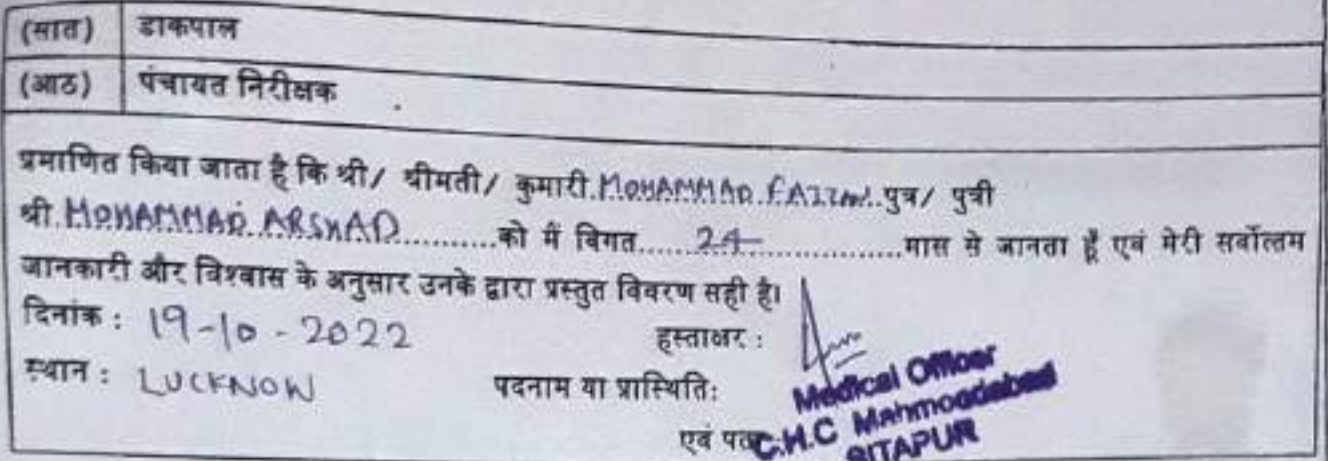 (सात) डाकपाल
(आठ) पंचायत निरीक्षक
प्रमाणित किया जाता है कि श्री/ श्रीमती/ कुमारी.MOHAMMAD.........पुत्र/ पुत्री
श्री.MOHAMMAD ARSHAD...........को मैं विगत......24......................मास से जानता हूँ एवं मेरी सर्वोत्तम
जानकारी और विश्वास के अनुसार उनके द्वारा प्रस्तुत विवरण सही है।
दिनांक : 19-10-2022 हस्ताक्षर :
स्थान : LUCKNOW पदनाम या प्रास्थिति: Medical Officer
एवं C.H.C Mahmoodabad
SITAPUR